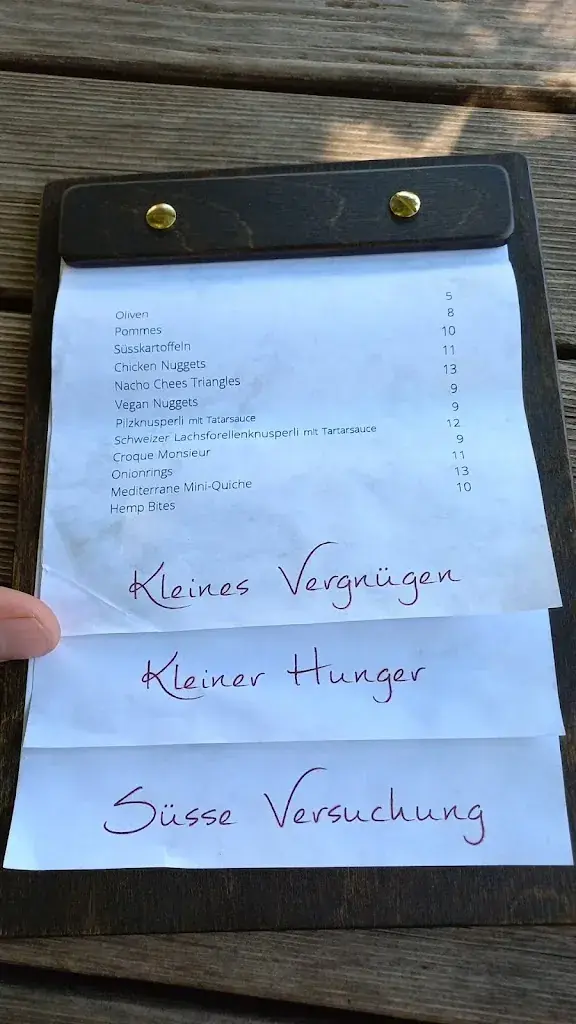 Oliven 5
Pommes 8
Süsskartoffeln 10
Chicken Nuggets 11
Nacho Chees Triangles 13
Vegan Nuggets 9
Pilzknusperli mit Tatarsauce 9
Schweizer Lachsforellenknusperli mit Tartarsauce 12
Croque Monsieur 9
Onionrings 11
Mediterrane Mini-Quiche 13
Hemp Bites 10
Kleines Vergnügen
Kleiner Hunger
Süsse Versuchung